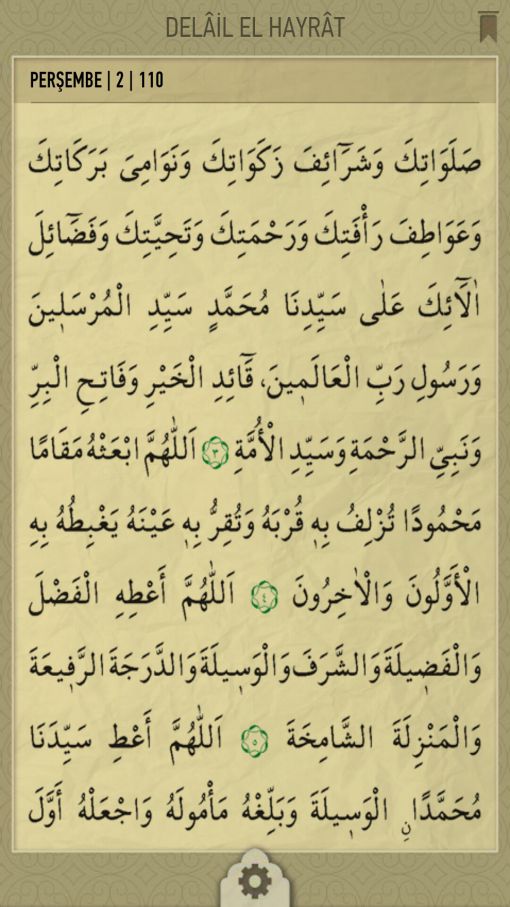 DELÂİL EL HAYRÂT
PERŞEMBE | 2 | 110
صَلَوَاتِكَ وَشَرَٓائِفَ زَكَوَاتِكَ وَنَوَامِىَ بَرَكَاتِكَ
وَعَوَاطِفَ رَأْفَتِكَ وَرَحْمَتِكَ وَتَحِيَّتِكَ وَفَضَٓائِلَ
اٰلَٓائِكَ عَلٰى سَيِّدِنَا مُحَمَّدٍ سَيِّدِ الْمُرْسَلٖينَ
وَرَسُولِ رَبِّ الْعَالَمٖينَ، قَٓائِدِ الْخَيْرِ وَفَاتِحِ الْبِرِّ
وَنَبِىِّ الرَّحْمَةِ وَسَيِّدِ الْأُمَّةِ ٣ اَللّٰهُمَّ ابْعَثْهُ مَقَامًا
مَحْمُودًا تُزْلِفُ بِهٖ قُرْبَهُ وَتُقِرُّ بِهٖ عَيْنَهُ يَغْبِطُهُ بِهِ
الْأَوَّلُونَ وَالْاٰخِرُونَ ٤ اَللّٰهُمَّ أَعْطِهِ الْفَضْلَ
وَالْفَضٖيلَةَ وَالشَّرَفَ وَالْوَسٖيلَةَ وَالدَّرَجَةَ الرَّفٖيعَةَ
وَالْمَنْزِلَةَ الشَّامِخَةَ ٥ اَللّٰهُمَّ أَعْطِ سَيِّدَنَا
مُحَمَّدًا نِ الْوَسٖيلَةَ وَبَلِّغْهُ مَأْمُولَهُ وَاجْعَلْهُ أَوَّلَ